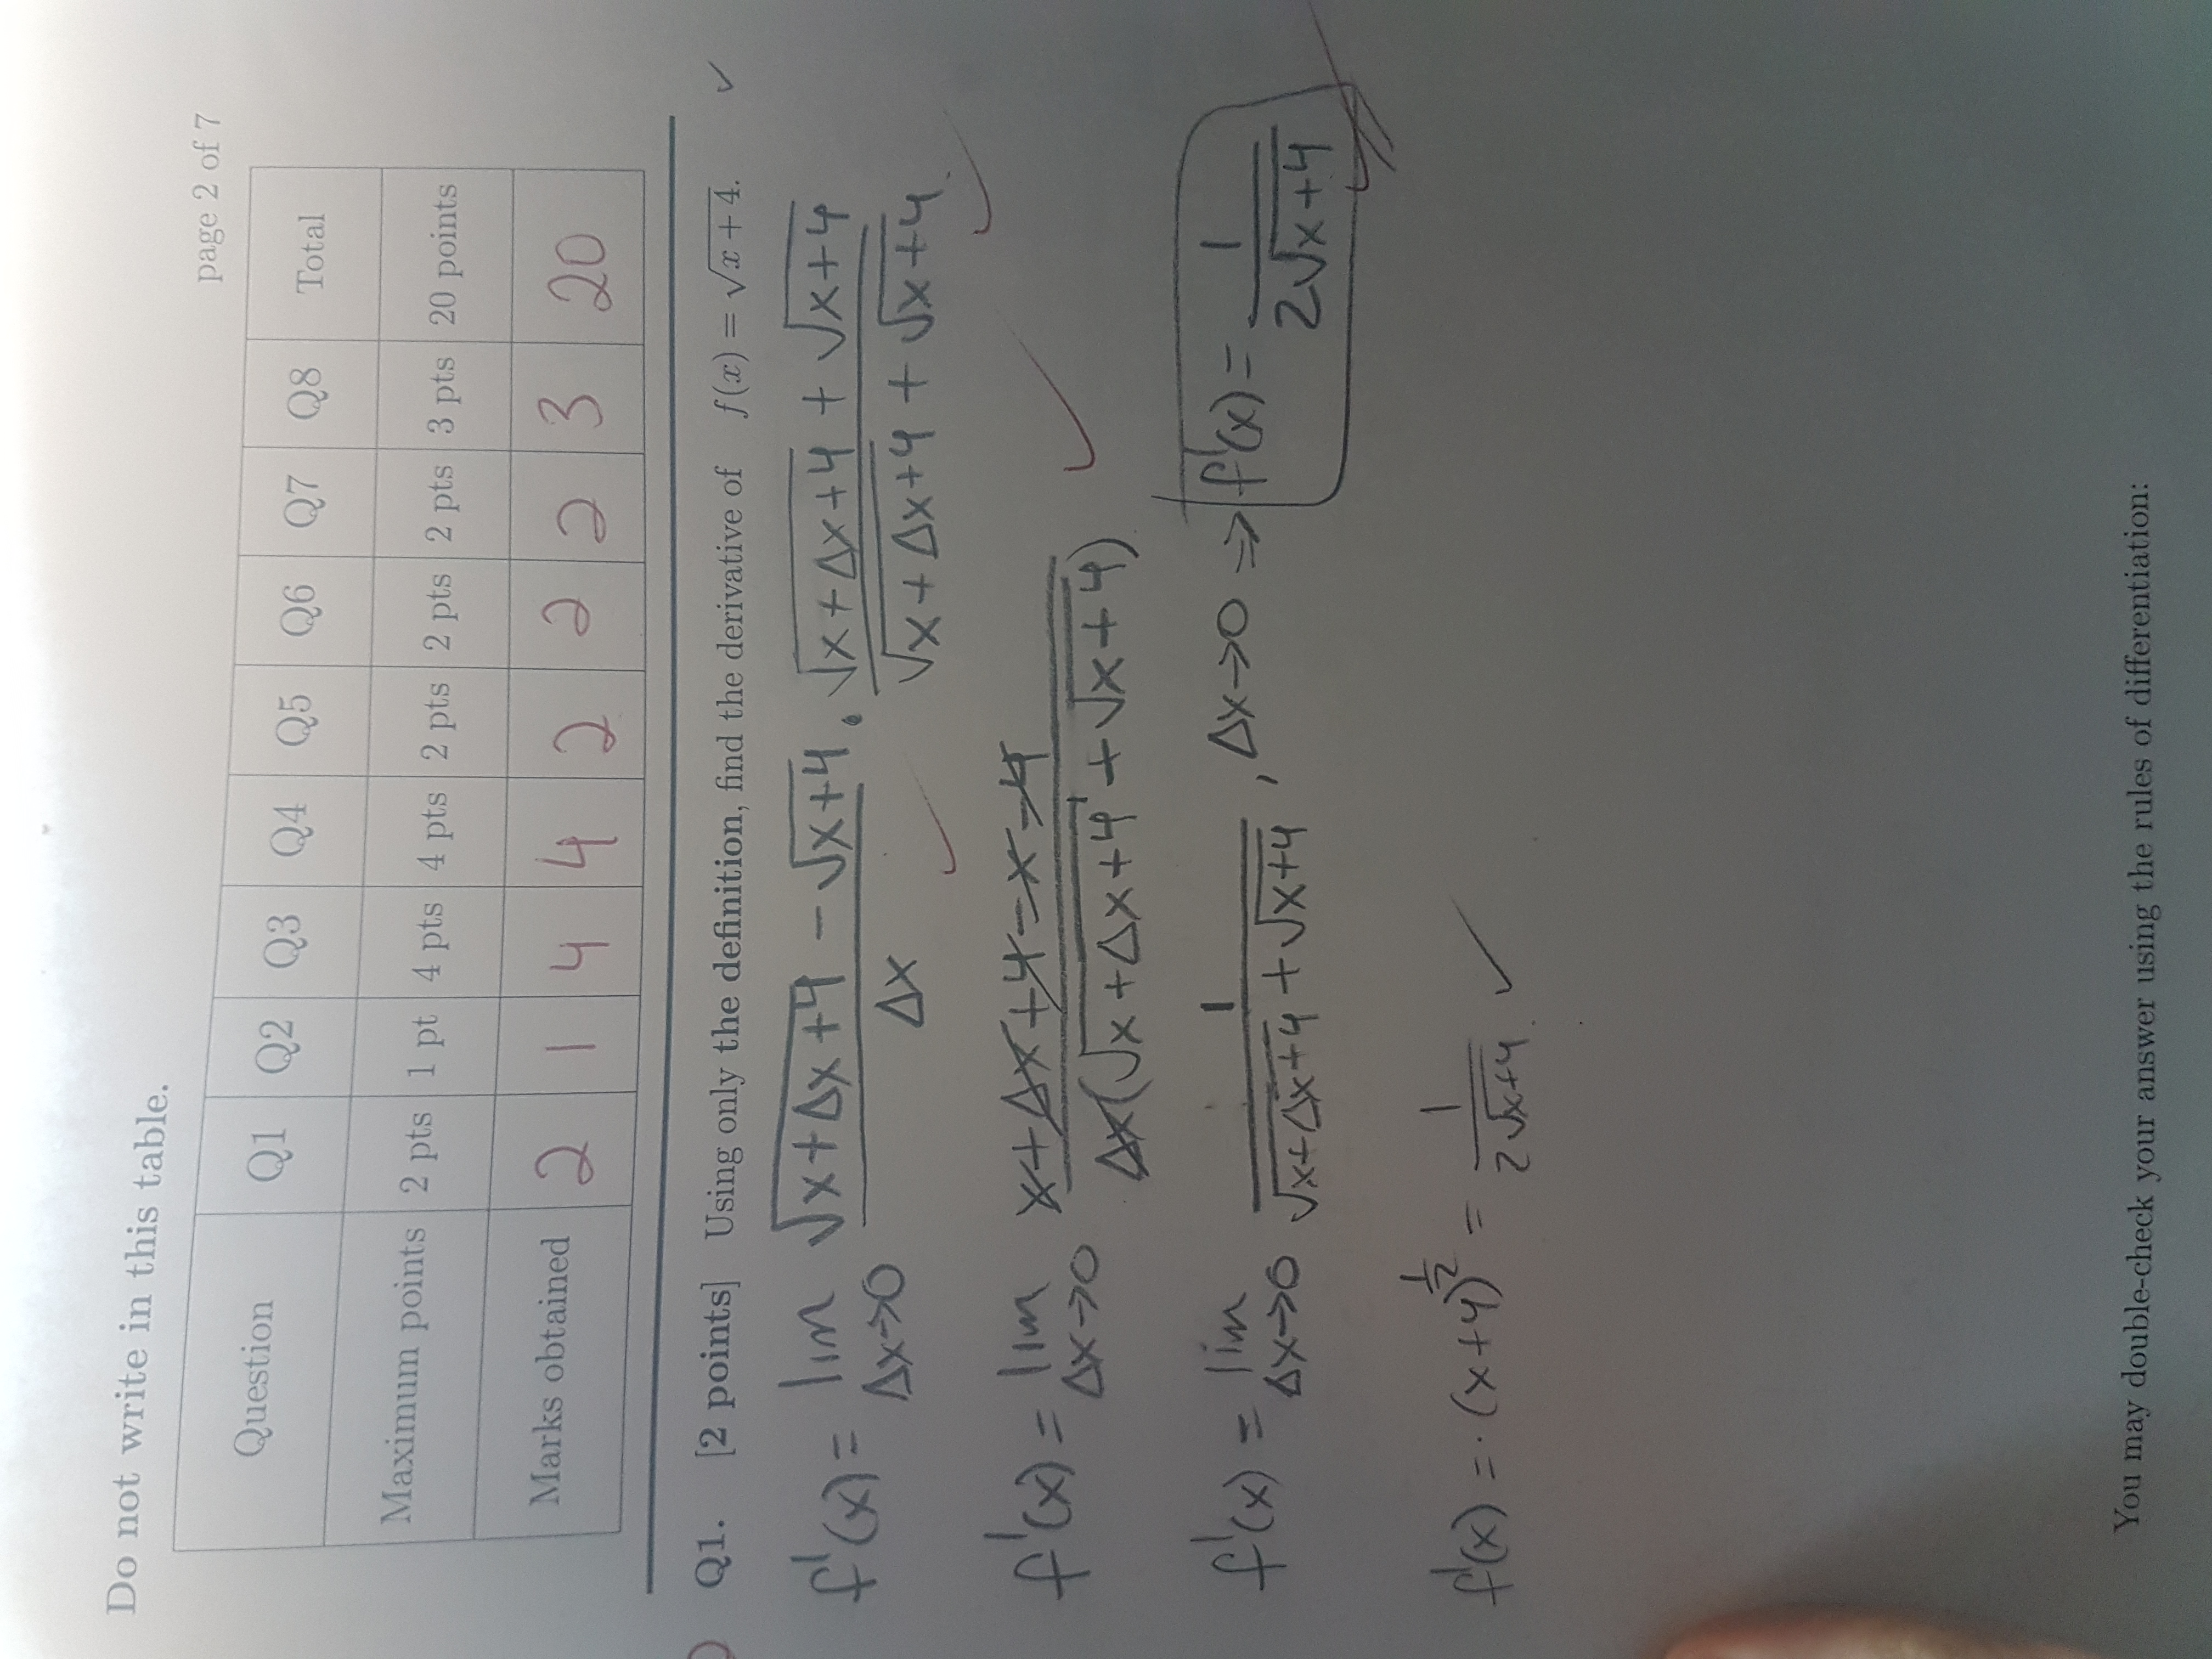 Do not write in this table.
page 2 of 7
Question Q1 Q2 Q3 Q4 Q5 Q6 Q7 Q8 Total
Maximum points 2 pts 1 pt 4 pts 4 pts 2 pts 2 pts 2 pts 3 pts 20 points
Marks obtained 2 1 4 4 2 2 2 3 20
Q1. [2 points] Using only the definition, find the derivative of f(x) = √(x + 4). ✓
f'(x) = lim Δx→0 (√(x+Δx+4) − √(x+4))/Δx · (√(x+Δx+4) + √(x+4))/(√(x+Δx+4) + √(x+4))
f'(x) = lim Δx→0 (x+Δx+4−x−4)/(Δx(√(x+Δx+4) + √(x+4)))
f'(x) = lim Δx→0 1/(√(x+Δx+4) + √(x+4)), Δx→0 ⇒ f'(x) = 1/(2√(x+4))
f'(x) = · (x+4)^(1/2) = 1/(2√(x+4)) ✓
You may double-check your answer using the rules of differentiation: